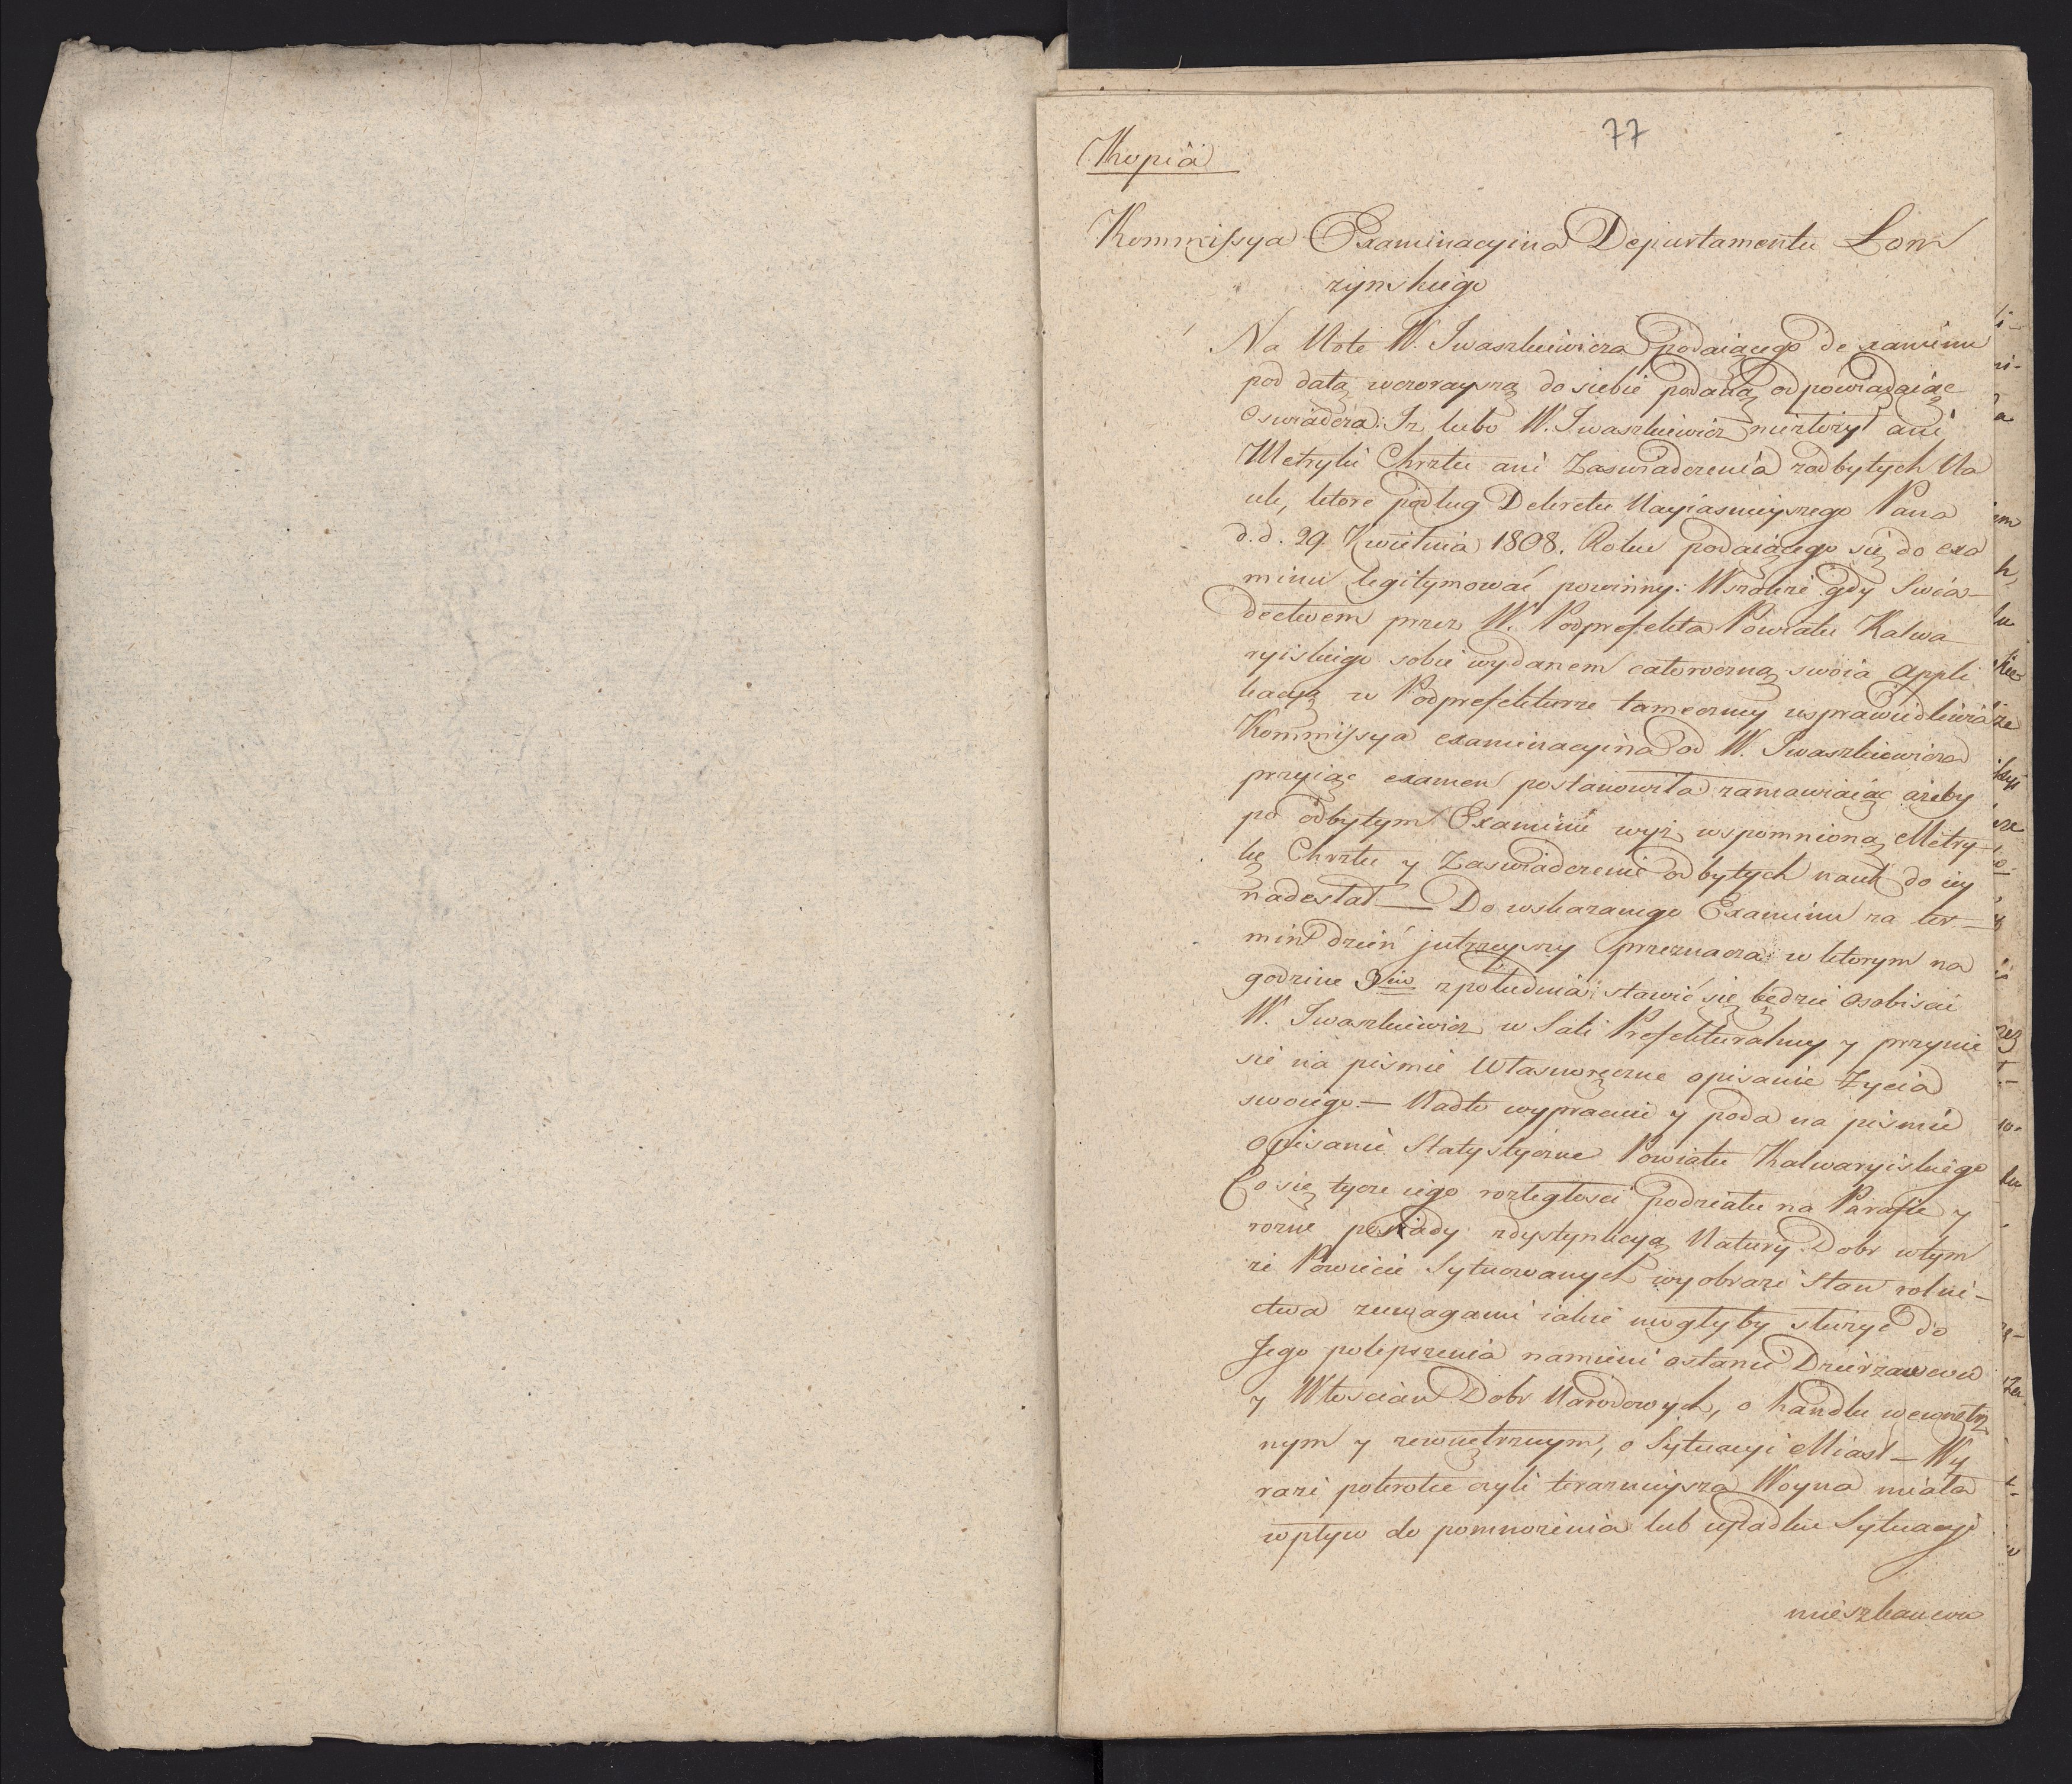 77
Kopia
Kommissya Examinacyina Departamentu Łom
żynskiego
Na Note W. Iwaszkiewicza podaiącego do examinu
pod datą wczorayszą do siebie podaną odpowiadaiąc
Oswiadcza: Iż lubo W. Iwaszkiewicz niezłożył ani
Metryki Chrztu ani Zaswiadczenia zodbytych Na
uk, ktore podług Dekretu Nayiasnieyszego Pana
d. d. 29. Kwietnia 1808. Roku podaiącego się do exa
minu legitymować powinny: Wszakże gdy Swia-
dectwem przez W. Podprefekta Powiatu Kalwa
ryiskiego sobie wydanem całoroczną swoia appli
kacyą w Podprefekturze tameczney usprawiedliwia
Kommissya examinacyina od W. Iwaszkiewicza
przyiąć examen postanowiła zamawiaiąc ażeby
po odbytym Examinie wyż wspomnioną Metry-
kę Chrztu y Zaswiadczenie odbytych nauk do iey
nadesłał — Do wskazanego Examinu za ter-
min dzień jutrzeyszy przeznacza: w ktorym na
godzine 3cią zpołudnia stawić się będzie osobiscie
W. Iwaszkiewicz w Sali Prefekturalney y przynie
sie na pismie Własnoręczne opisanie życia
swoiego. — Nadto wypracuie y poda na pismie
opisanie Statystyczne Powiatu Kalwaryiskiego
Co się tycze iego rozległosci podziału na Parafie y
rożne posiady zdystynkcyą Natury Dobr wtym
że Powiecie Sytuowanych wyobrazi stan rolni-
ctwa zuwagami iakie mogłyby służyć do
Jego polepszenia namieni ostanie Dzierżawcow
y Włoscian Dobr Narodowych, o handlu wewnętrz
nym y zewnętrznym, o Sytuacyi Miast — Wy
razi pokrotce czyli teraznieysza Woyna miała
wpływ do pomnożenia lub upadku Sytuacyi
mieszkancow